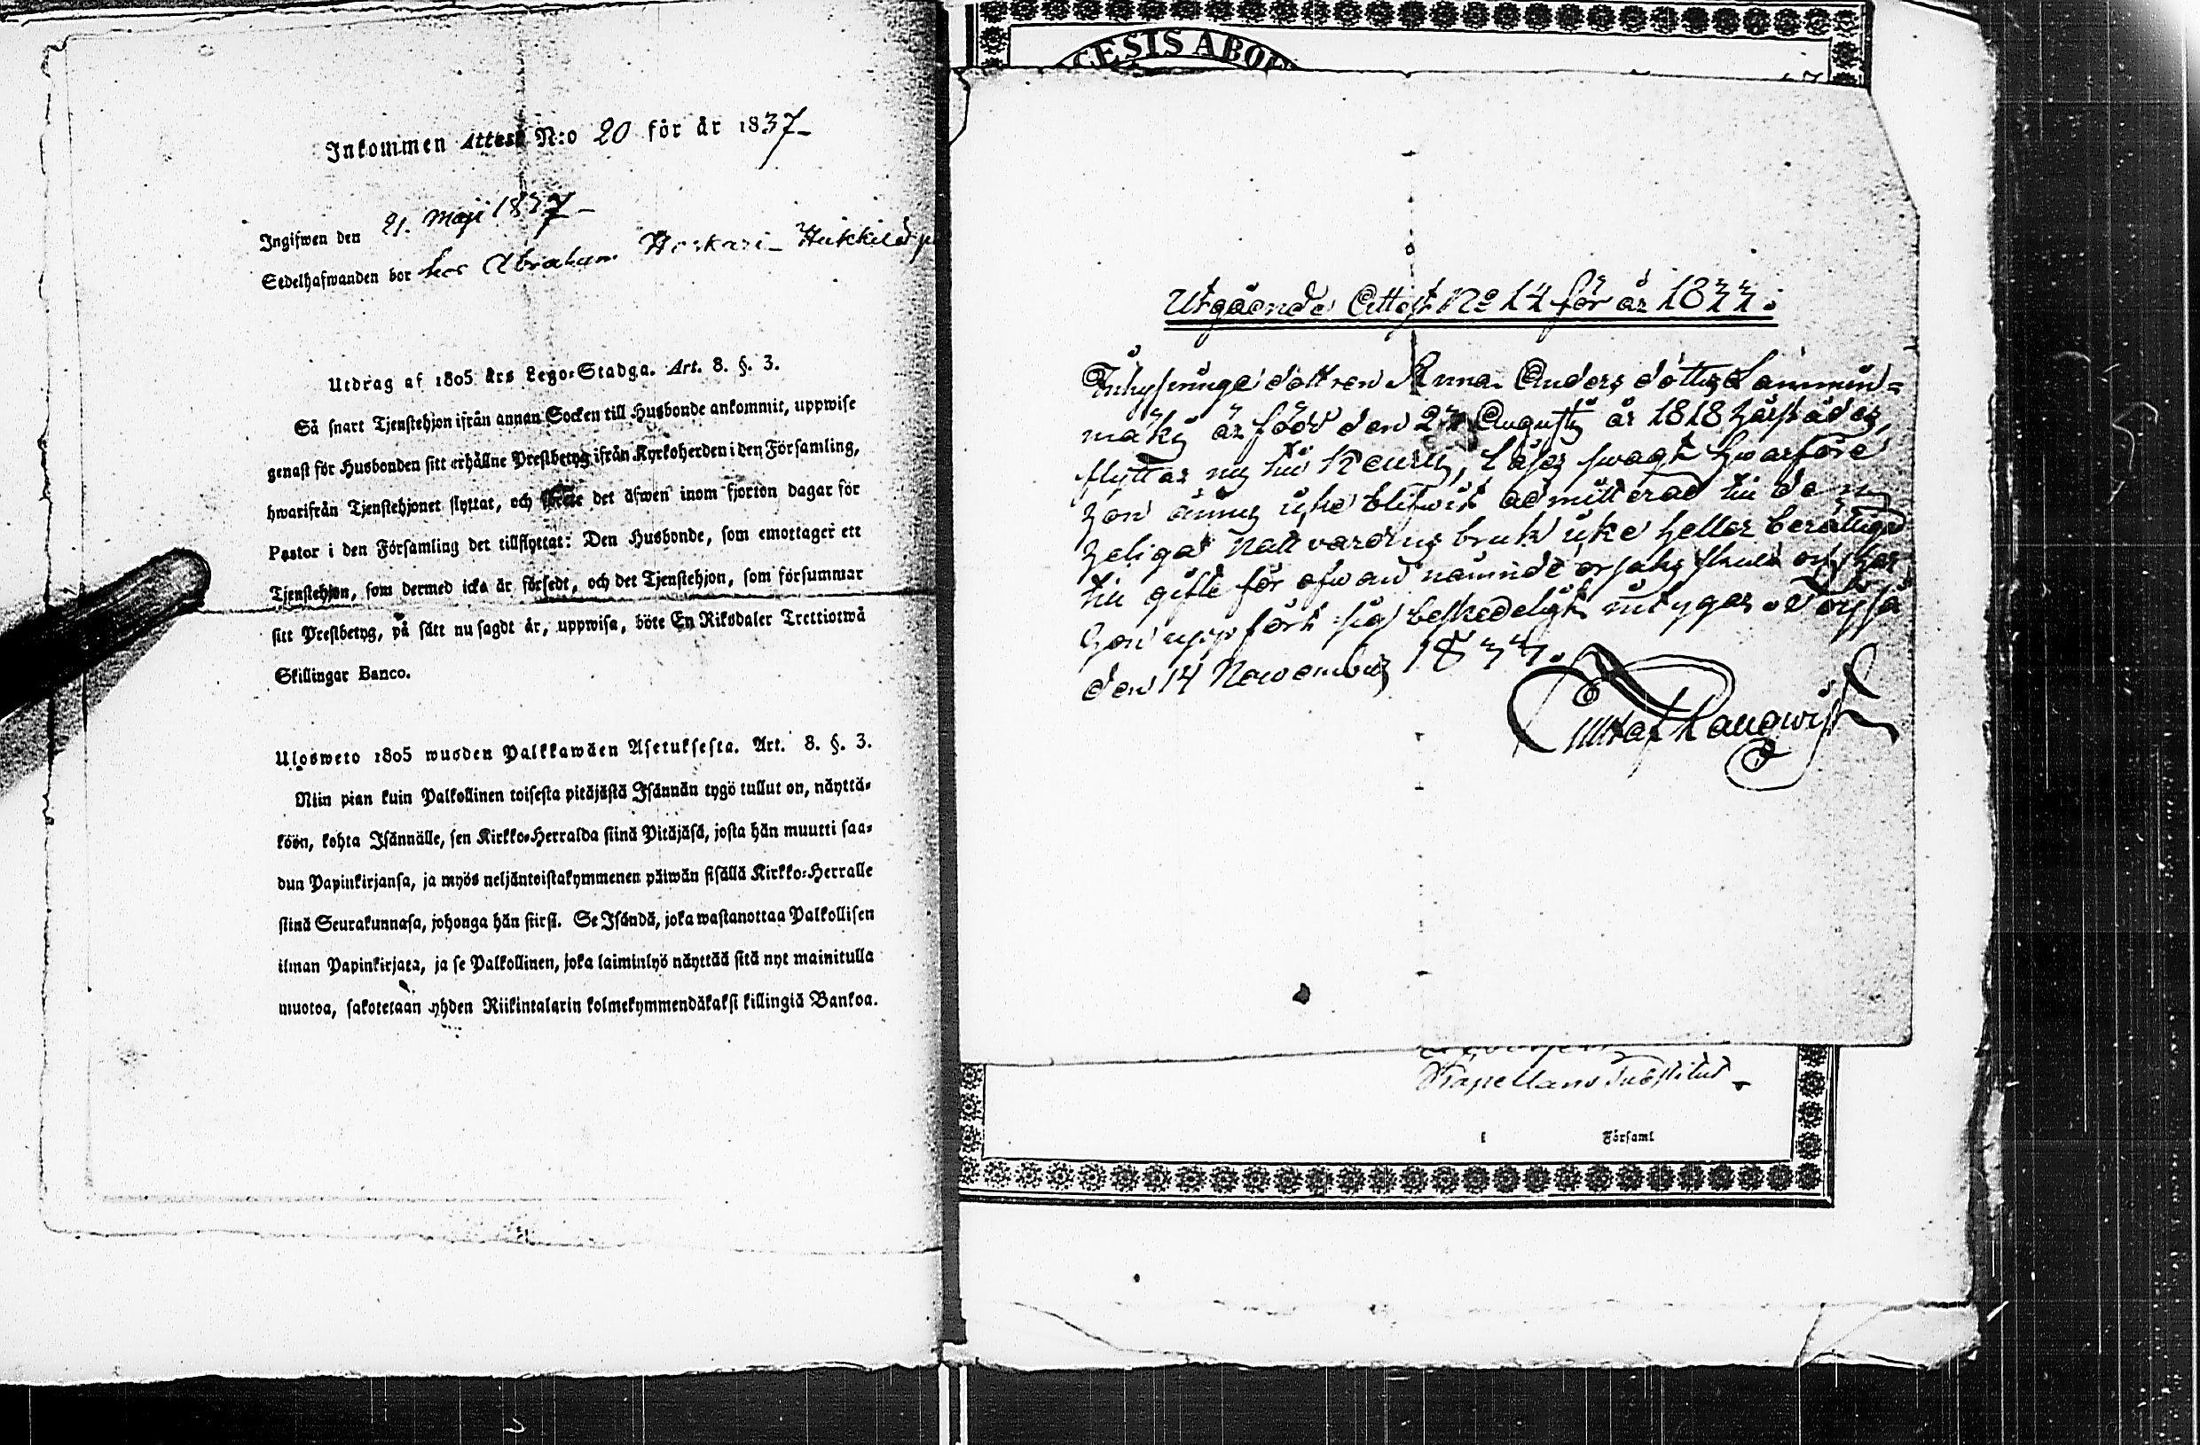 Inkommen Attest N:o 20 för år 1837
Ingifwen den 21. Maji 1837
Sedelhafwanden bor hos Abraham Heikkilä
Utdrag af 1805 års Lego-Stadga. Art. 8. §. 3.
Så snart Tjenstehjon ifrån annan Socken till Husbonde ankommit, uppwise
genast för Husbonden sitt erhållne Prestbetyg ifrån Kyrkoherden i den Församling,
hwarifrån Tjenstehjonet flyttat, och det äfwen inom fjorton dagar för
Pastor i den Församling det tillflyttat: Den Husbonde, som emottager ett
Tjenstehjon, som dermed icka är försedt, och det Tjenstehjon, som försummar
sitt Prestbetyg, på sätt nu sagdt är, uppwisa, böte En Riksdaler Trettiotwå
Skillingar Banco.
Ulosweto 1805 wuoden Palkkawäen Asetuksesta. Art. 8. §. 3.
Niin pian kuin Palkollinen toisesta pitäjästä Isännän tygö tullut on, näyttä-
köön, kohta Isännälle, sen Kirkko-Herralda siinä Pitäjäsä, josta hän muutti saa-
dun Papinkirjansa, ja myös neljäntoistakymmenen päiwän sisällä Kirkko-Herralle
siinä Seurakunnasa, johonga hän siirsi. Se Isändä, joka wastanottaa Palkollisen
ilman Papinkirjata, ja se Palkollinen, joka laiminlyö näyttää sitä nyt mainitulla
muotoa, sakotetaan yhden Riikintalarin kolmekymmendäkaksi killingiä Bankoa.
CESIS ABOE
Utgående Attest No 14 för år 1833.
Inhysinge dottren Anna Anders dotter Lammin=
mäki är född den Augusti år 1818 härstädes,
flyttar nu till läser swagt hwarföre
hon ännu icke blifwit admitterad till den
heliga Nattvardens bruk icke heller berättigad
till gifte för ofwan nämnde orsaks skuld och har
hon uppfört sig beskedeligt intygar
den 14 November 1833.
Gustaf Rangwist
Kapellans Substitut
i Församl